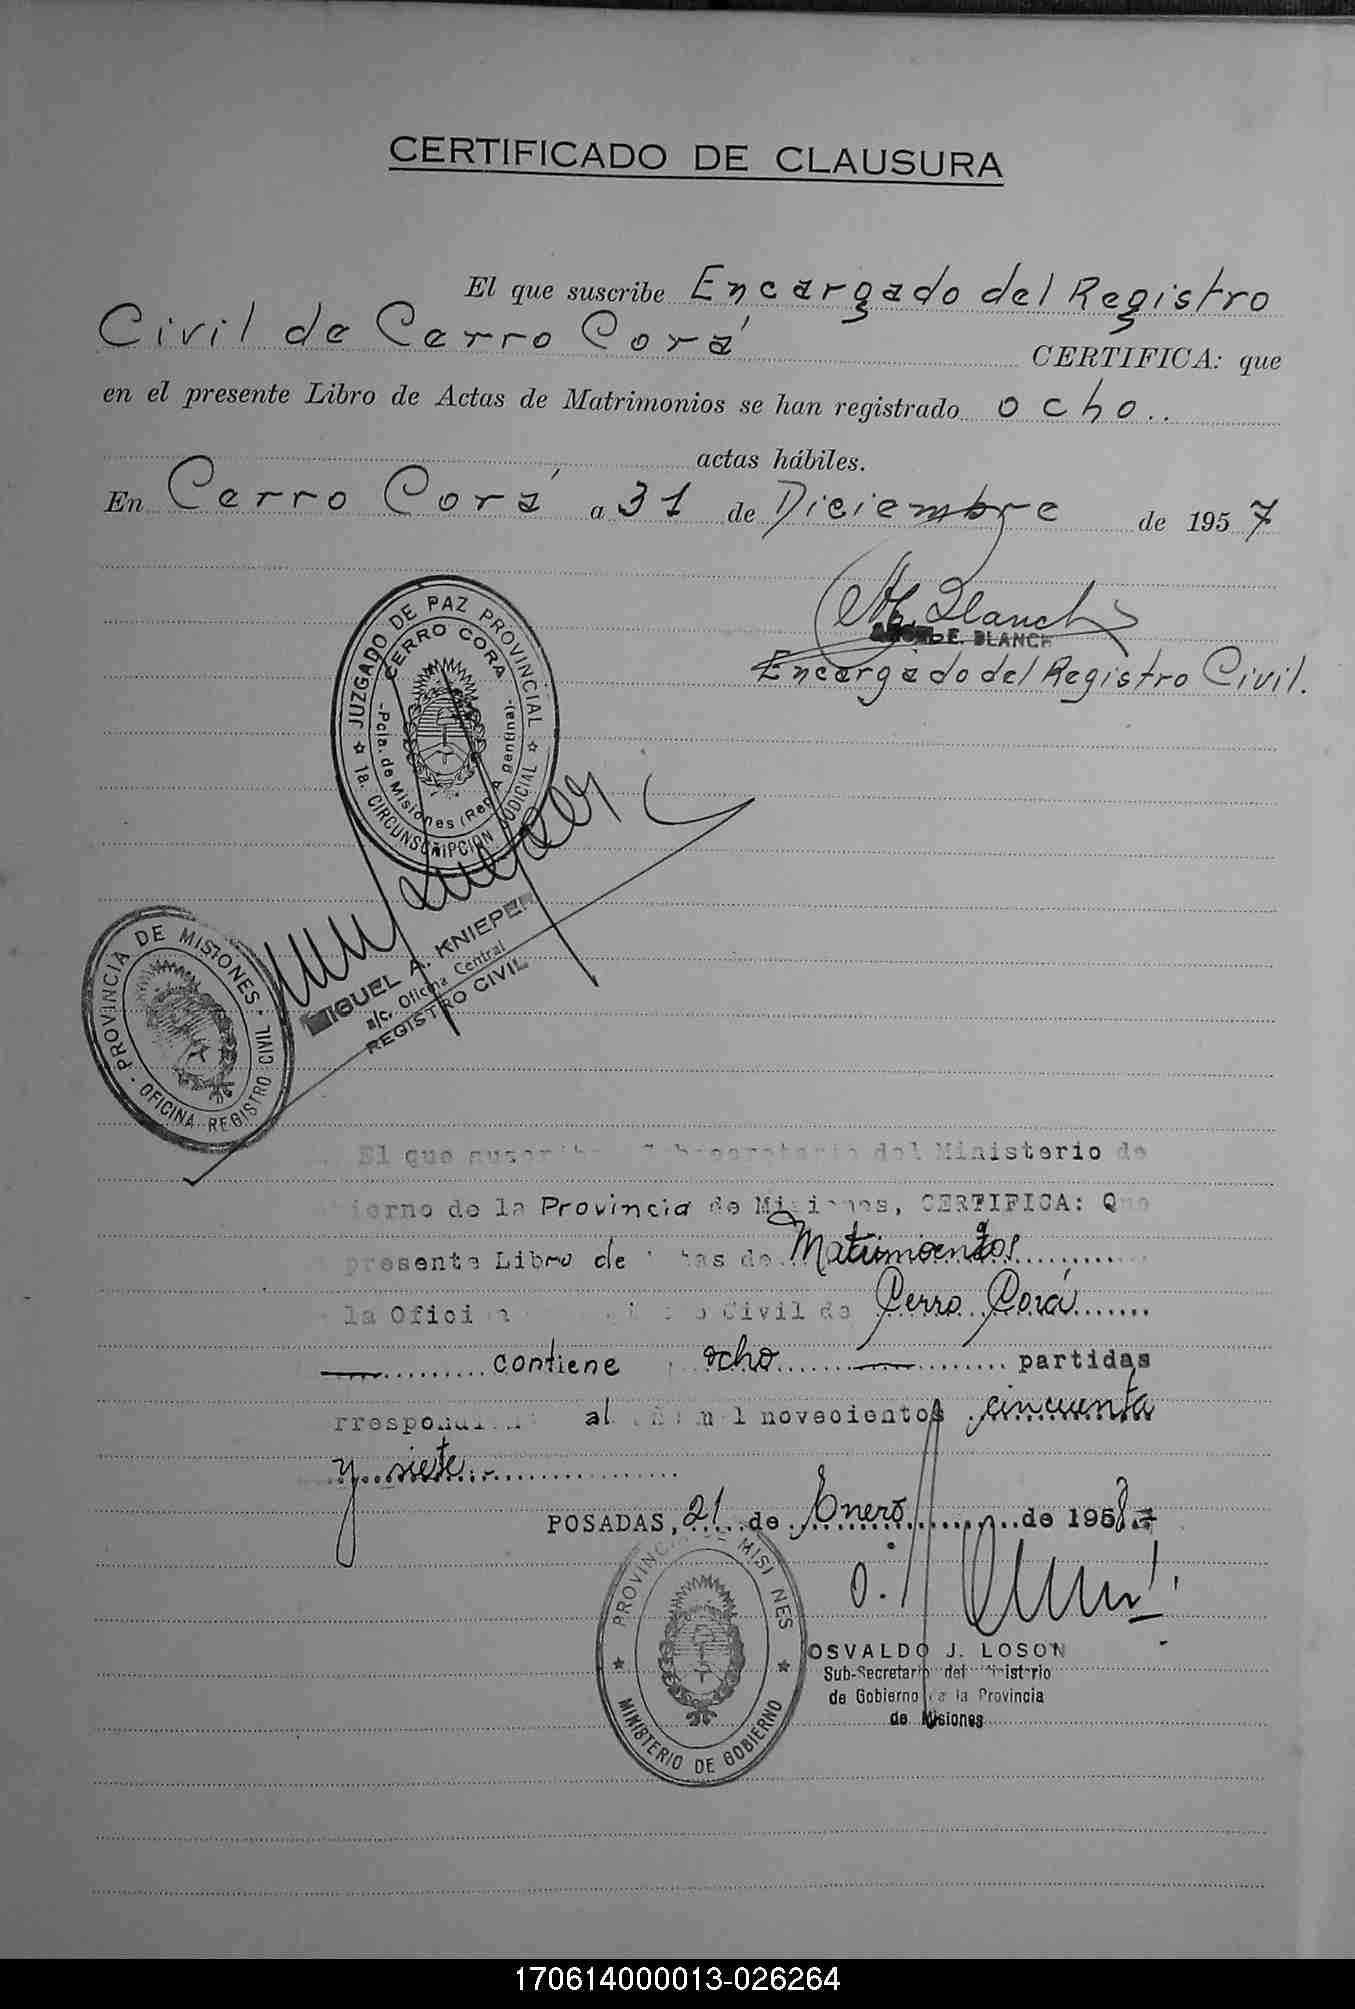 CERTIFICADO DE CLAUSURA
El que suscribe Encargado del Registro
Civil de Cerro Corá CERTIFICA: que
en el presente Libro de Actas de Matrimonios se han registrado ocho..
actas hábiles.
En Cerro Corá a 31 de Diciembre de 1957
E. BLANCH
Encargado del Registro Civil.
JUZGADO DE PAZ PROVINCIAL
CERRO CORA
-Pcia. de Misiones (Rep. Argentina)-
1a. CIRCUNSCRIPCION JUDICIAL
MIGUEL A. KNIEPER
a/c. Oficina Central
REGISTRO CIVIL
PROVINCIA DE MISIONES
OFICINA REGISTRO CIVIL
El que suscribe Subsecretario del Ministerio de
ierno de la Provincia de Misiones, CERTIFICA: Que
presente Libro de tas de Matrimonios
la Ofici Civil de Cerro Corá
contiene ocho partidas
rrespondi al novecientos cincuenta
y siete
POSADAS, 21 de Enero de 1958
PROVINCIA DE MISIONES
MINISTERIO DE GOBIERNO
OSVALDO J. LOSON
Sub-Secretario del Ministerio
de Gobierno de la Provincia
de Misiones
170614000013-026264